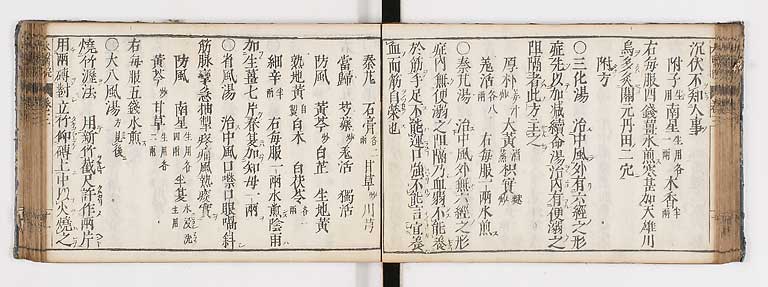 沉伏不知人事
附子生 南星生用各一兩 木香半兩
右每服四錢薑水煎寒甚加天雄川
烏多灸關元丹田二穴
附方
○三化湯 治中風外有六經之形
症先以加減續命湯治内有便溺之
阻隔者此方主之
厚朴 大黃酒 枳實
羌活各八兩 右每服一兩水煎
○秦艽湯 治中風外無六經之形
症内無便溺之阻隔乃血弱不能養
於筋手足不能運口強不能言宜養
血而筋自榮也
秦艽 石膏各一兩 甘草 川芎
當歸 芍藥 羌活 獨活
防風 黃芩 白芷 生地黃
熟地黃 白朮 白茯苓各一兩
細辛半兩 右每服一兩水煎陰雨
加生薑七片春夏加知母一兩
○省風湯 治中風口噤口眼喎斜
筋脉攣急抽掣疼痛風熱痰實
防風 南星生用各四兩 半夏水浸洗生用
黃芩 甘草生用各二兩
右每服五錢水煎
○大八風湯方見後
燒竹瀝法 用新竹截尺許作兩片
用兩磚對立竹仰磚上中以火燒之